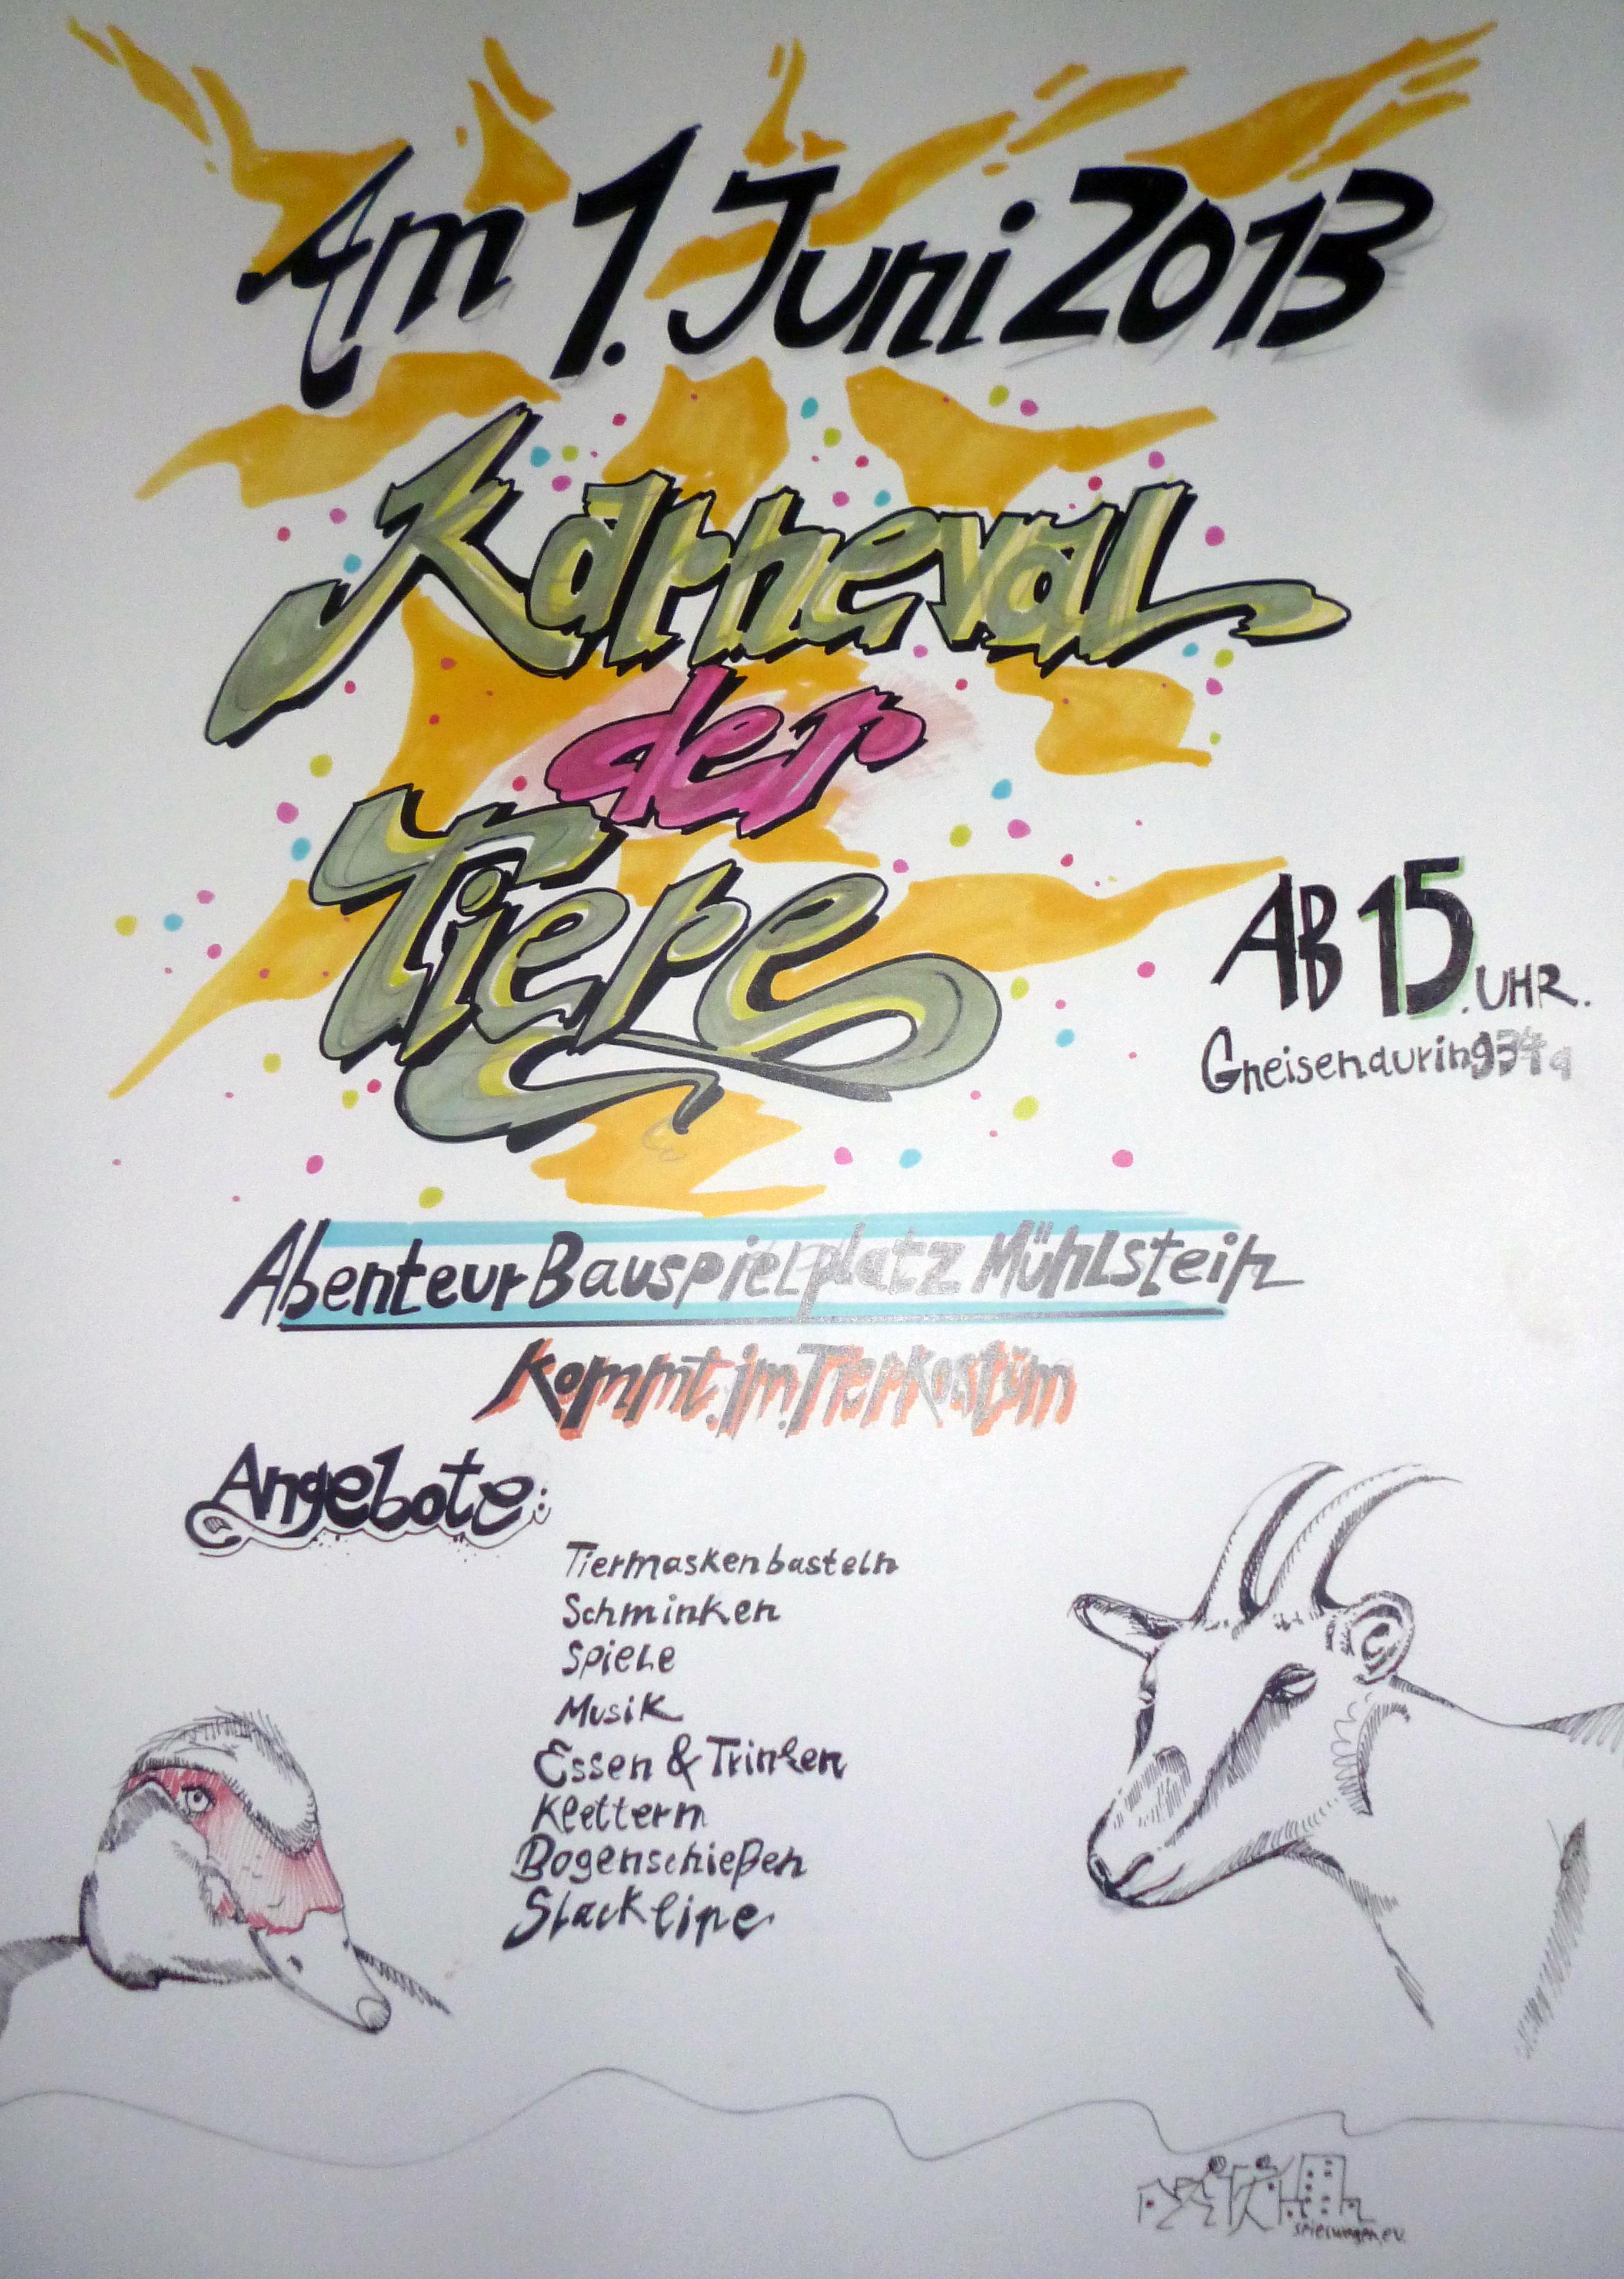 Am 1. Juni 2013
Karneval
der
Tiere
AB 15. UHR.
Gneisenauring 34a
AbenteurBauspielplatz Mühlstein
Kommt im Tierkostüm
Angebote:
Tiermaskenbasteln
Schminken
Spiele
Musik
Essen & Trinken
Klettern
Bogenschießen
Slackline
spielwagen e.V.